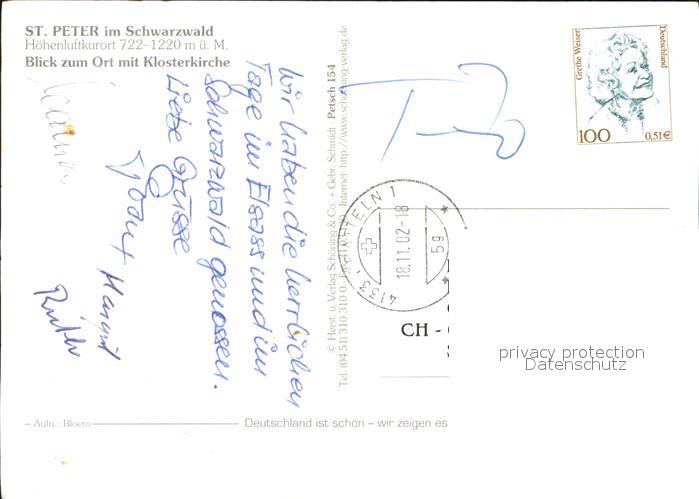 ST. PETER im Schwarzwald
Höhenluftkurort 722–1220 m ü. M.
Blick zum Ort mit Klosterkirche
wir haben die herrlichen
Tage im Elsass und im
Schwarzwald genossen.
Liebe Grüsse
Margrit
Ruth
© Herst. u. Verlag Schöning & Co. + Gebr. Schmidt Petsch 154
Tel. (04 51) 310 310 0 Internet: http://www.schoening-verlag.de
Grethe Weiser
Deutschland
100 0,51€
4133 PRATTELN 1
18.11.02-18
59
CH -
privacy protection
Datenschutz
– Aufn.: Bloem
Deutschland ist schön – wir zeigen es